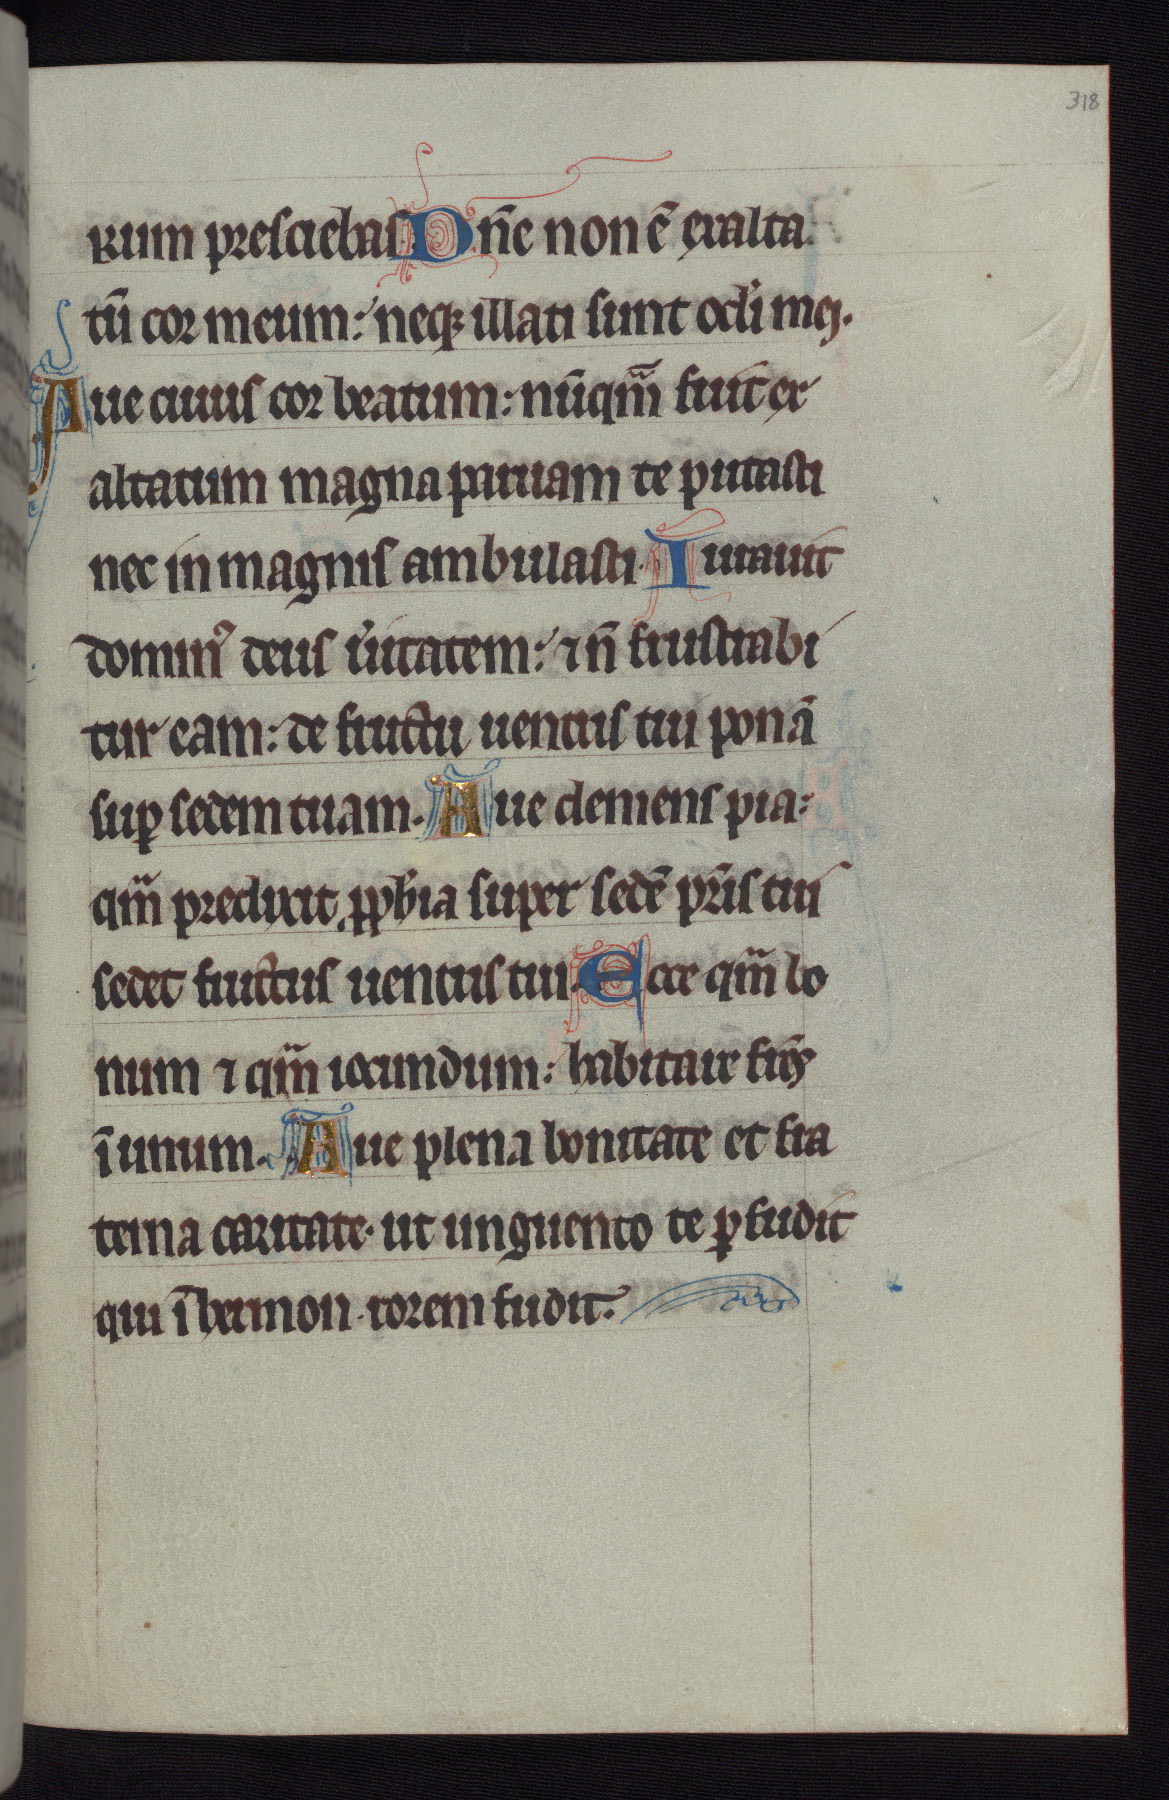 318
rum presciebas. Dn̄e non ē exalta
tū cor meum: neqꝫ illati sunt oc̄li mei.
Aue cuius cor beatum: nūqm̄ fuit ex
altatum magna paruam te putasti
nec in magnis ambulasti. Iurauit
domin᷒ deus u̓itatem: ⁊ n̄ frustrabi
tur eam: de fructu uentris tui ponā
suꝑ sedem tuam. Aue clemens pia:
qm̄ predixit ꝓph̄ia super sedē pr̄is tui
sedet fructus uentris tui. Ecce qm̄ bo
num ⁊ qm̄ iocundum: habitare fr̄s
ī unum. Aue plena bonitate et fra
terna caritate. ut unguento te ꝑfudit
qui ī hermon. rorem fudit.